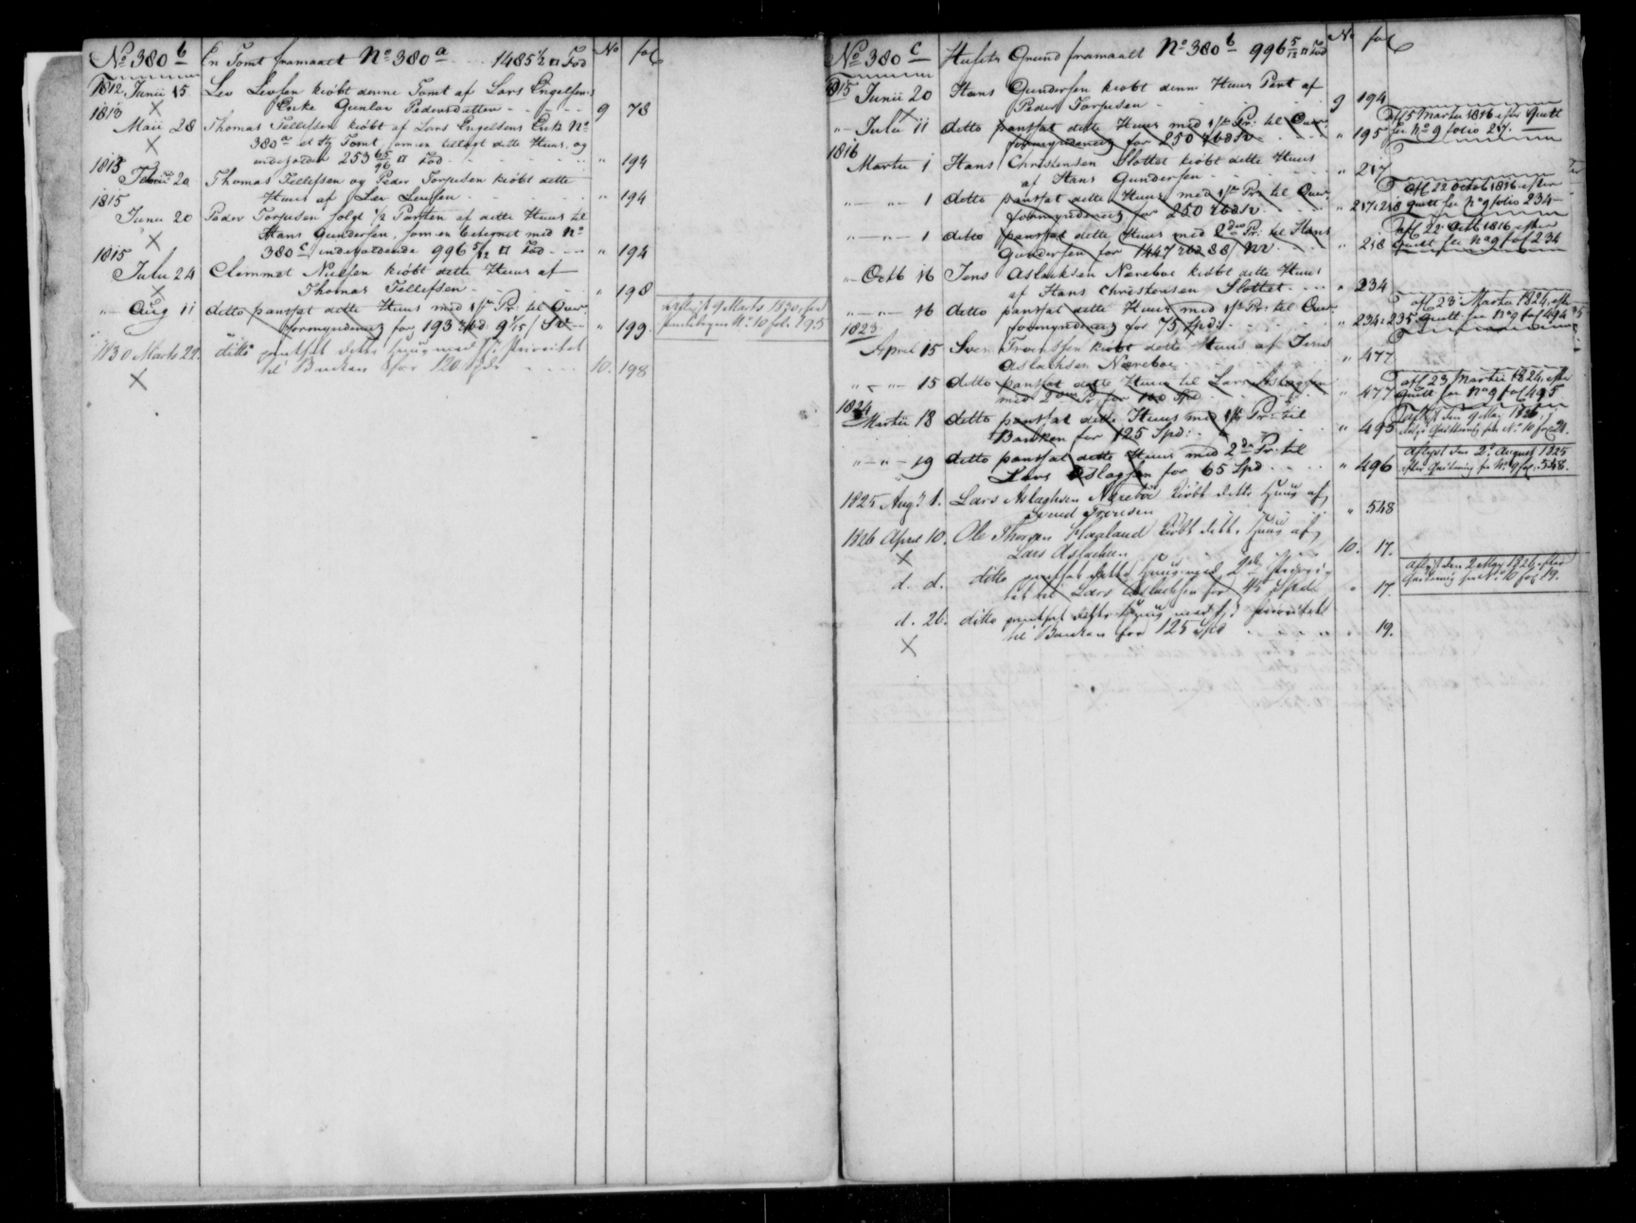 No 380 b En Tomt framaalt No 380 a 1485 1/2 □ Fod No fol
1812 Junii 15 Lev Levsen kiøbt denne Tomt af Lars Engelsens
Enke Gunlov Pedersdatter 9 78
1813
Maii 28 Thomas Tellefsen kiøbt af Lars Engelsens Enke No
380 a et Tomt, som er tillagt dette Huus, og
indeholder 253 65/96 □ Fod " 194
1813
20 Thomas Tellefsen og Peder Torjusen kiøbt dette
Huus af Lev Levsen " 194
1815
Junii 20 Peder Torjusen solgt 1/2 Parten af dette Huus til
Hans Gundersen, som er betegnet med No
380 c indeholdende 996 5/12 □ Fod " 194
1815
Julii 24 Clemmet Nielsen kiøbt dette Huus af
Thomas Tellefsen " 198
" Aug 11 ditto pantsat dette Huus med 1ste Pr. til Over
formynderiet for 193 199
Aflyst 9 Marts 1830, fol
No 10 fol. 195
1830 Marts 22. ditto pantsat dette Huus med 1ste Prioritet
til Banken for 120 Spd 10. 198
No 380 c Husets Grund framaalt No 380 b 996 5/12 □ Fod No fol
1815 Junii 20 Hans Gundersen kiøbt denne Huus Part af
Peder Torjusen 9 194
" Julii 11 ditto pantsat dette Huus med 1ste Pr. til Over
formynderiet for 250 rbd Sv " 195
afl 5 Martii 1816 efter Quitt
fer No 9 folio 217.
1816
Martii 1 Hans Christensen Slottet kiøbt dette Huus
af Hans Gundersen " 217
" " 1 ditto pantsat dette Huus med 1ste Pr. til Over
formynderiet for 250 rbd Sv " 217-218
afl 22 Octob 1816 efter
Quitt fer No 9 folio 234
" " 1 ditto pantsat dette Huus med 2den Pr. til Hans
Gundersen for 1447 rbd 88 / NV " 218
afl 22 Octb 1816 efter
Quitt fer No 9 fol 234
" Octb 16 Jens Aslaksen Nærebøe kiøbt dette Huus
af Hans Christensen Slottet " 234
" " 16 ditto pantsat dette Huus med 1ste Pr. til Over
formynderiet for 75 Spd: " 234-235
afl 23 Martii 1824, efter
Quitt fer No 9 fol 494-95
1823
April 15 Sven Troensen kiøbt dette Huus af Jens
Aslaksen Nærebøe " 477
" " 15 ditto pantsat dette Huus til Lars Aslagsen
med 2den Pr. for 100 Spd " 477
afl 23 Martii 1824, efter
Quitt fer No 9 fol 495
1824
Martii 18 ditto pantsat dette Huus med 1ste Pr. til
Banken for 125 Spd: " 495
Aflyst den 9 May 1826,
Quittering fer No 10 fol 21.
" " 19 ditto pantsat dette Huus med 2den Pr. til
Lars Aslagsen for 65 Spd " 496
Aflyst den 2 August 1825
efter Quittering fer No 9 fol. 548.
1825 Aug: 1. Lars Aslachsen Nærebøe kiøbt dette Huus af
Svend Troensen " 548
1826 April 10. Ole Thorsen Haaland kiøbt dette Huus af
Lars Aslachsen 10. 17.
d. d. ditto pantsat dette Huus med 2den Priori-
tet til Lars Aslachsen for 45 Spd " 17.
Aflyst den 2 May 1826, efter
Quittering fer No 10 fol. 19.
d. 26. ditto pantsat dette Huus med 1ste Prioritet
til Banken for 125 Spd " 19.